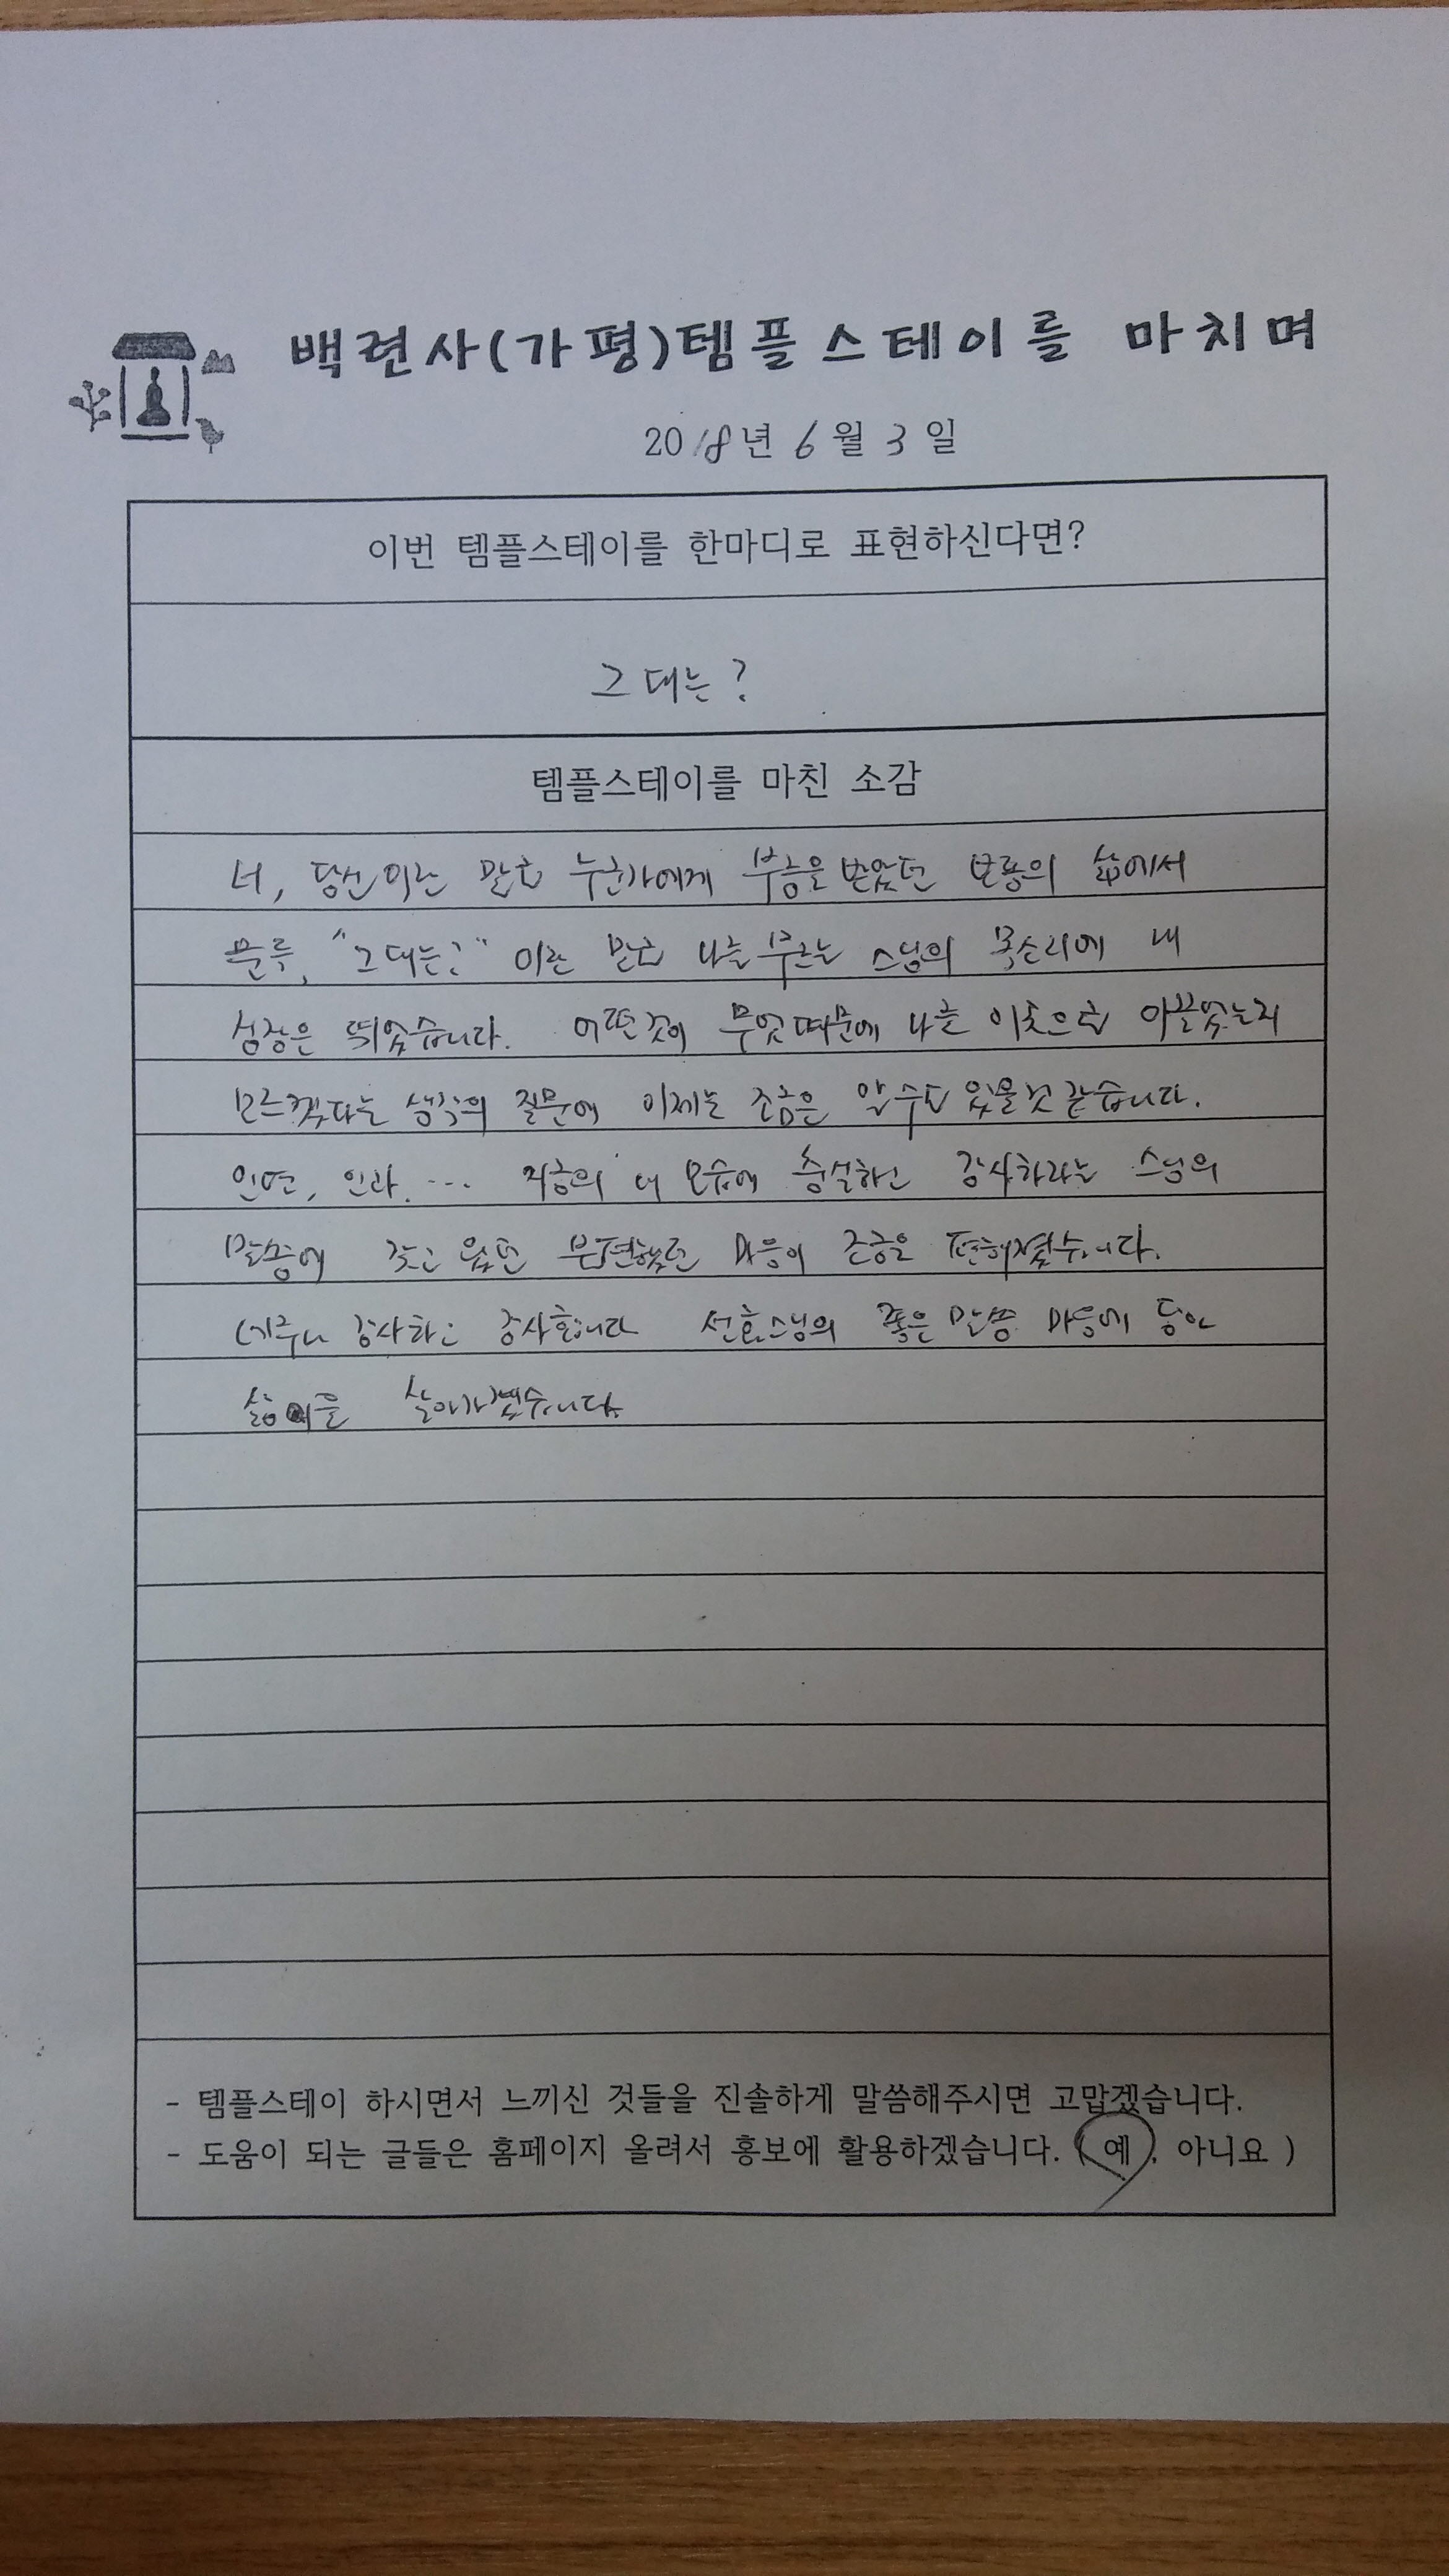 백련사(가평)템플스테이를 마치며
2018년 6월 3일
이번 템플스테이를 한마디로 표현하신다면?
그대는?
템플스테이를 마친 소감
너, 당신이란 말로 누군가에게 부름을 받았던 보통의 삶에서
문득, "그대는?" 이란 말로 나를 부르는 스님의 목소리에 내
심장은 뛰었습니다. 어떤것이 무엇때문에 나를 이곳으로 이끌었는지
모르겠다는 생각의 질문에 이제는 조금은 알수도 있을것 같습니다.
인연, 인과. ... 지금의 내 모습에 충실하고 감사하라는 스님의
말씀에 갖고 있던 불편했던 마음이 조금은 편해졌습니다.
감사하고 감사합니다 선효스님의 좋은 말씀 마음에 담아
삶을 살아가겠습니다.
- 템플스테이 하시면서 느끼신 것들을 진솔하게 말씀해주시면 고맙겠습니다.
- 도움이 되는 글들은 홈페이지 올려서 홍보에 활용하겠습니다. ( 예 , 아니요 )